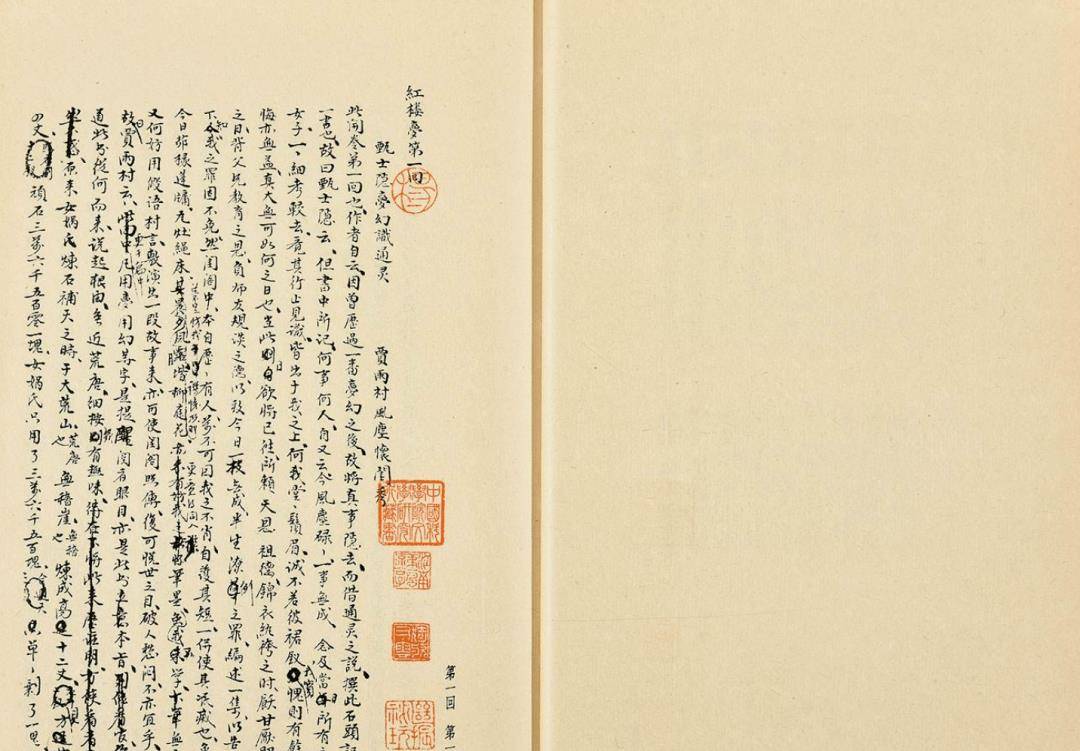 第一回 第一
紅楼夢第一回
甄士隐夢幻識通灵 賈雨村風塵懷閨秀
此開卷第一回也作者自云因曾歷過一番夢幻之後故將真事隐去而借通灵之說撰此石頭記
一書也故曰甄士隐云、但書中所記何事何人自又云今風塵碌、一事無成、念及當日所有
女子一、細考較去覺其行止見識皆出于我之上何我堂、鬚眉誠不若彼裙釵我實愧則有
悔亦無益真大無可如何之日也當此則自欲將已徃所賴天恩祖德錦衣紈袴之時飫甘厭肥
之日背父兄教育之恩負師友規談之德以致今日一技無成半生潦倒之罪編述一集以告
下知我之罪固不免然閨阁中本自歷、有人萬不可因我之不肖自護其短一併使其泯滅也
今日茆椽蓬牖瓦灶繩床其晨夕風露堦柳庭花 筆墨 我未學下筆無
又何妨用假語村言敷演出一段故事來亦可使閨阁照傳復可悅世之目破人愁悶不亦宜乎
故曰賈雨村云、更于篇中凡用夢用幻等字是提醒閱者眼目亦是此书立意本旨
道此书從何而來說起根由虽近荒唐細按則有趣味待在下將此來歷註明方使看者
原來女媧氏煉石補天之時于大荒山荒唐也無稽崖無稽也煉成高 十二丈 方
四丈 頑石三萬六千五百零一塊女媧氏只用了三萬六千五百塊 单、剩了一塊
中國科學院文學研究所藏書